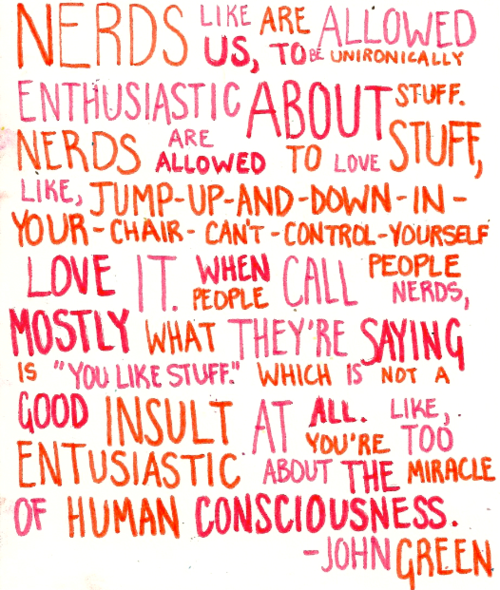 NERDS LIKE US, ARE ALLOWED TO BE UNIRONICALLY
ENTHUSIASTIC ABOUT STUFF.
NERDS ARE ALLOWED TO LOVE STUFF,
LIKE, JUMP-UP-AND-DOWN-IN-
YOUR-CHAIR-CAN'T-CONTROL-YOURSELF
LOVE IT. WHEN PEOPLE CALL PEOPLE NERDS,
MOSTLY WHAT THEY'RE SAYING
IS "YOU LIKE STUFF." WHICH IS NOT A
GOOD INSULT AT ALL. LIKE, YOU'RE TOO
ENTUSIASTIC ABOUT THE MIRACLE
OF HUMAN CONSCIOUSNESS.
-JOHN GREEN